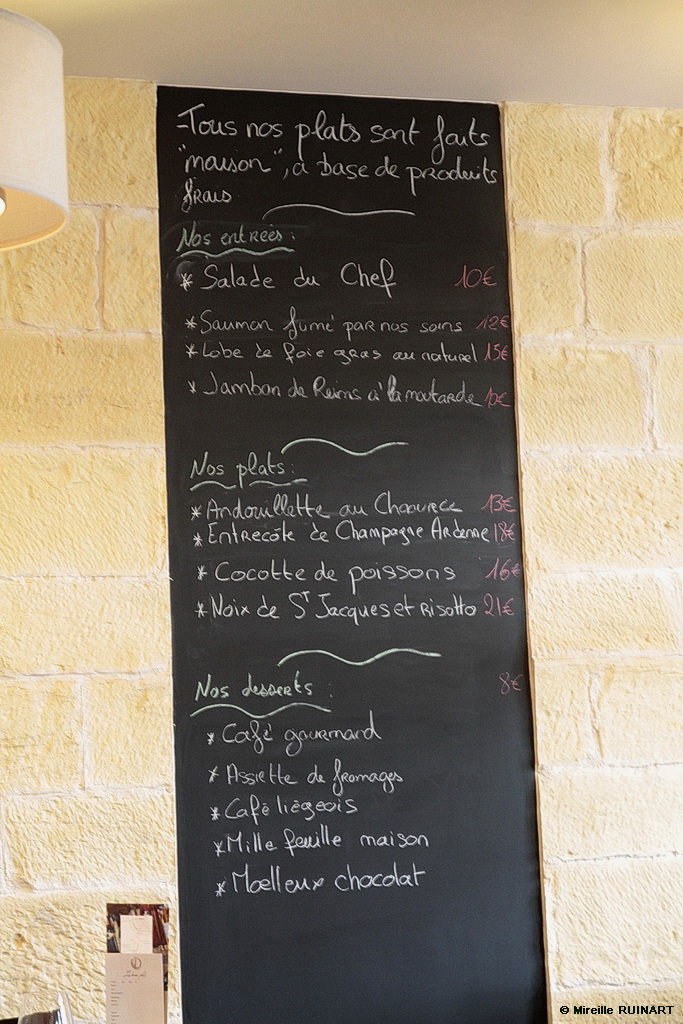 -Tous nos plats sont faits
"maison", à base de produits
frais
Nos entrées :
* Salade du Chef 10€
* Saumon fumé par nos soins 12€
* Lobe de foie gras au naturel 15€
* Jambon de Reims à la moutarde 10€
Nos plats :
* Andouillette au Chaource 13€
* Entrecôte de Champagne Ardenne 18€
* Cocotte de poissons 16€
* Noix de ST Jacques et risotto 21€
Nos desserts : 8€
* Café gourmand
* Assiette de fromages
* Café liégeois
* Mille feuille maison
* Moelleux chocolat
© Mireille RUINART